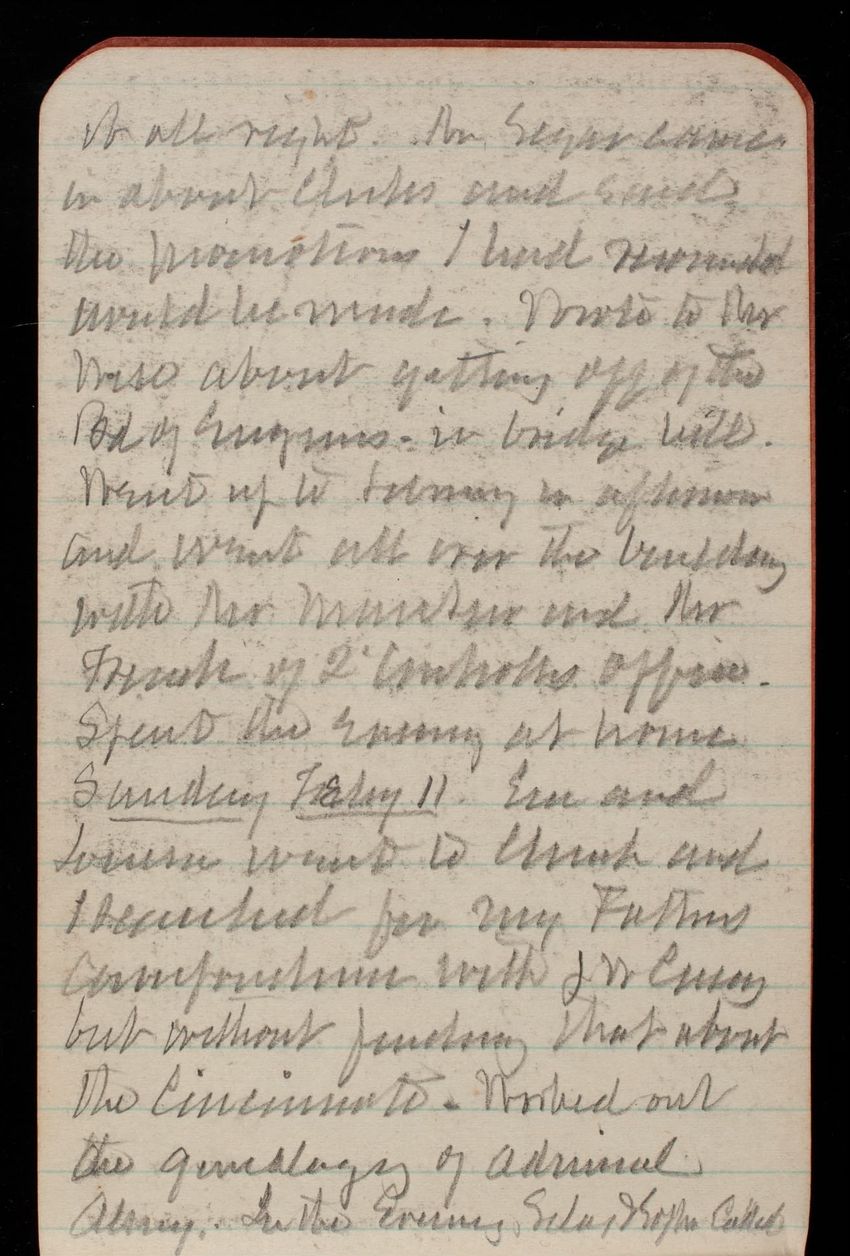 it all right. Mr Segar came
in about Clerks and said
the promotions I had
would be made. Wrote to Mr
Wise about getting off of the
Bd of Engineers in bridge bill.
Went up to Library in afternoon
and went all over the building
with Mr and Mr
French of 2d Controllers Office.
Spent the evening at home
Sunday Feby 11. Em and
Louise went to Church and
I searched for my Fathers
Correspondence with J W Casey
but without finding that about
the Cincinnati - Worked out
the genealogy of Admiral
Almy. In the Evening, & Sophie Called